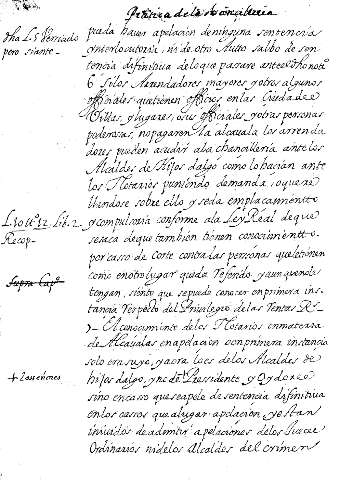 Práctica de la Chancillería
dha L. 5 Versiculo
pero si ante
pueda haver apelación de ninguna sentencia
interlocutoria, ni de otro Auto salbo de sen-
tencia difinitiva de lo que pasare ante dho notº
6 Si los Arrendadores mayores, y otros algunos
officiales que tienen officios en las Ciudades
Villas, y lugares, o sus officiales y otras personas
poderosas, no pagaren la alcauala los arrenda
dores pueden acudir a la chancilleria ante los
Alcaldes de Hijos dalgo como lo hacian ante
los Notarios puniendo demanda, o quere
llandose sobre ello y se da emplacamiento
L. 10 tt. 12. Lib. 2
Recop
y compulsoria conforme a la Ley Real de que
se saca de que tambien tienen conocimiento
por casso de Corte contra las personas que
como en otro lugar queda y aunque no lo
Supra Capº
tengan, siento que se puede conocer en primera ins-
tancia respecto del Privilegio de las Rentas Rs
7 El conocimiento de los Notarios en materia
de Alcaualas en apelacion o en primera instancia
solo era suyo, y aora lo es de los Alcaldes de
+ Los señores
hijos dalgo, y no de + Presidente y Oydores
sino en caso que se apele de sentencia difinitiva
en los cassos que a lugar apelación, y estan
inividos de admitir apelaciones de los Jueces
Ordinarios ni de los Alcaldes del crimen